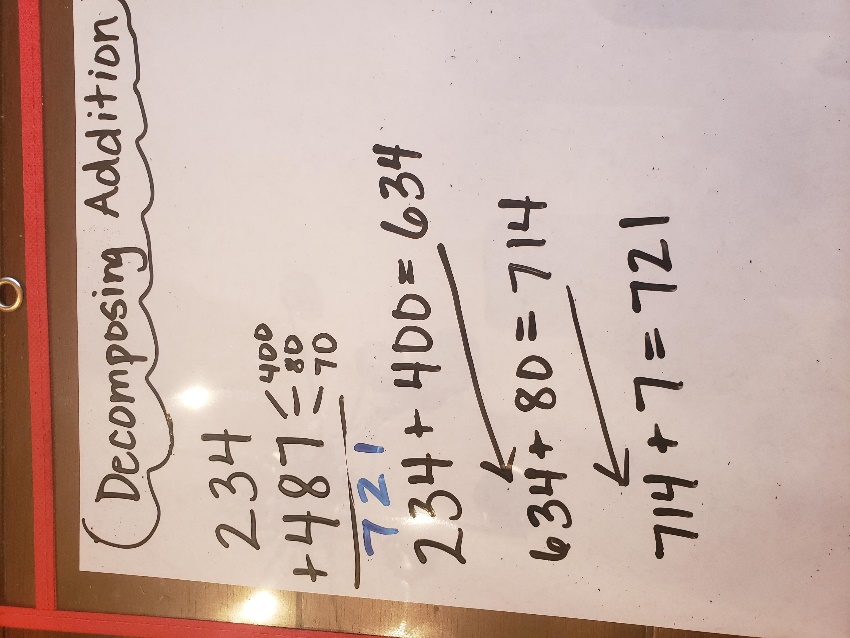 Decomposing Addition
234
+487 400
80
70
721
234 + 400 = 634
634 + 80 = 714
714 + 7 = 721